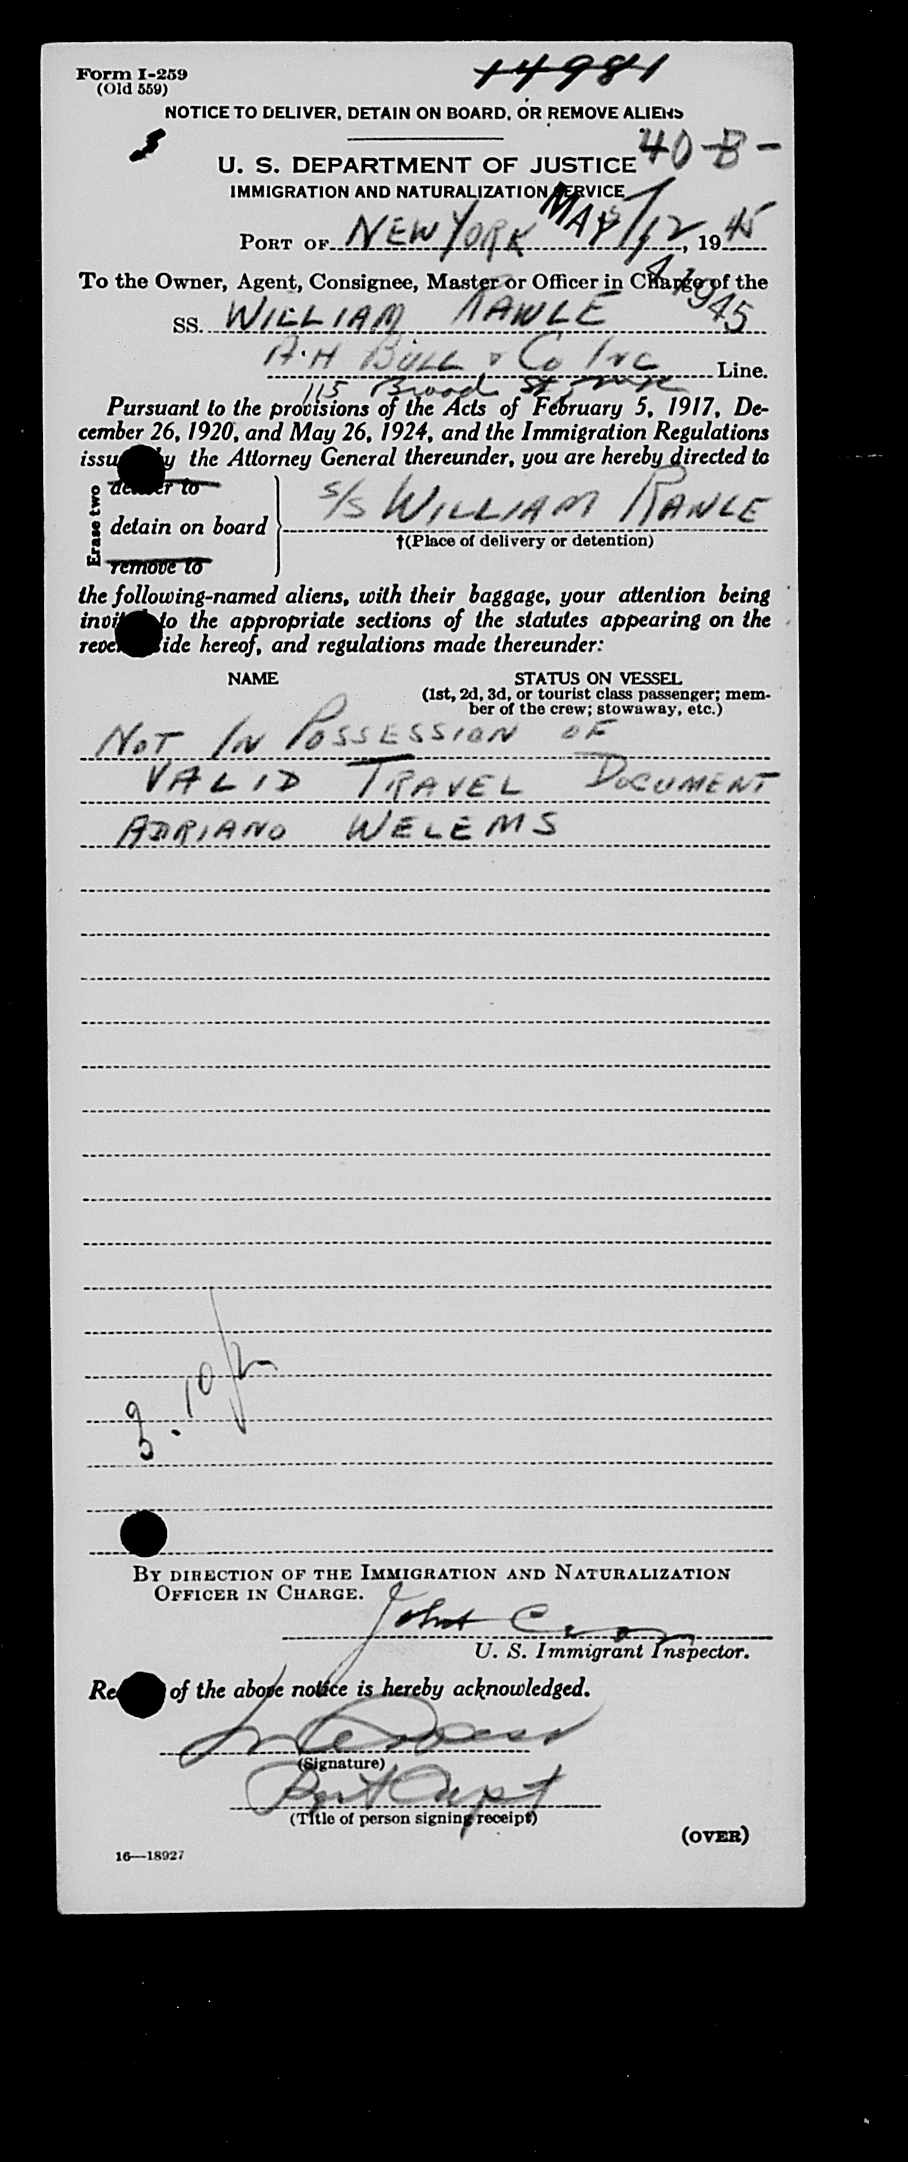 Form I-259
(Old 559)
14981
NOTICE TO DELIVER, DETAIN ON BOARD, OR REMOVE ALIENS
40-B-
U. S. DEPARTMENT OF JUSTICE
IMMIGRATION AND NATURALIZATION SERVICE
PORT OF NEW YORK 5/12, 1945
MAY 1945
To the Owner, Agent, Consignee, Master or Officer in Charge of the
SS. WILLIAM RAWLE
A.H BULL & Co INC Line.
115 Broad St
Pursuant to the provisions of the Acts of February 5, 1917, De-
cember 26, 1920, and May 26, 1924, and the Immigration Regulations
issued by the Attorney General thereunder, you are hereby directed to
Erase two
deliver to
detain on board
remove to
S/S WILLIAM RAWLE
†(Place of delivery or detention)
the following-named aliens, with their baggage, your attention being
invited to the appropriate sections of the statutes appearing on the
reverse side hereof, and regulations made thereunder:
NAME
STATUS ON VESSEL
(1st, 2d, 3d, or tourist class passenger; mem-
ber of the crew; stowaway, etc.)
NOT IN POSSESSION OF
VALID TRAVEL DOCUMENT
ADRIANO WELEMS
BY DIRECTION OF THE IMMIGRATION AND NATURALIZATION
OFFICER IN CHARGE.
John
U. S. Immigrant Inspector.
Receipt of the above notice is hereby acknowledged.
(Signature)
Port Capt
(Title of person signing receipt)
(OVER)
16—18927